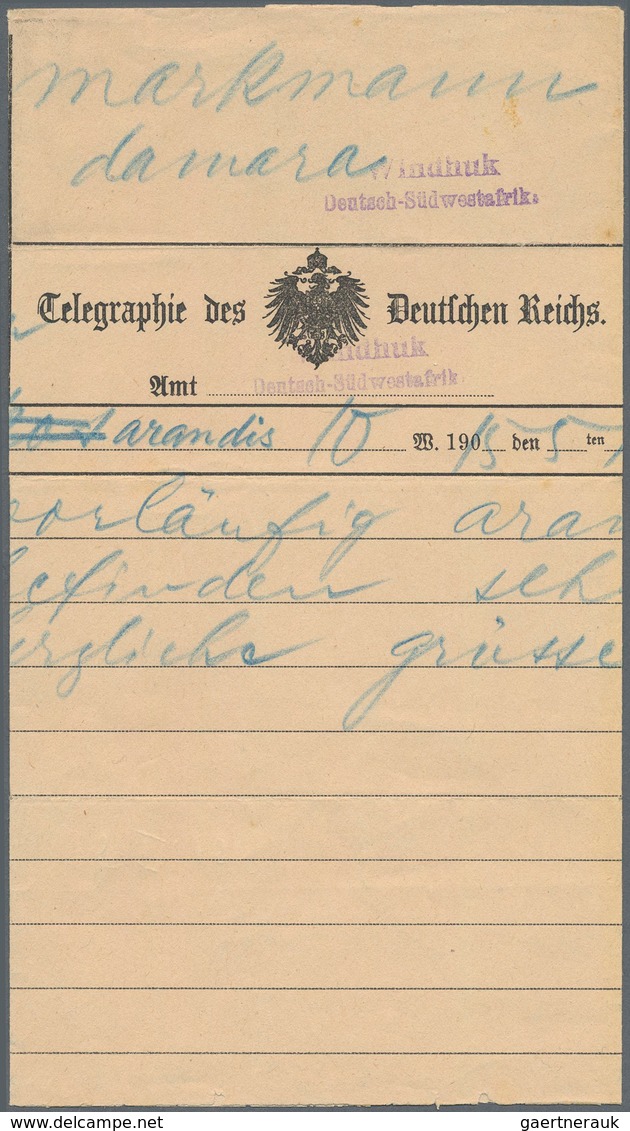 markmann
damara Windhuk
Deutsch-Südwestafrika
Telegraphie des Deutschen Reichs.
Windhuk
Amt Deutsch-Südwestafrik
arandis 10 W. 190 15 den 5 ten
vorläufig aran
befinden seh
herzliche grüsse
gaertnerauk